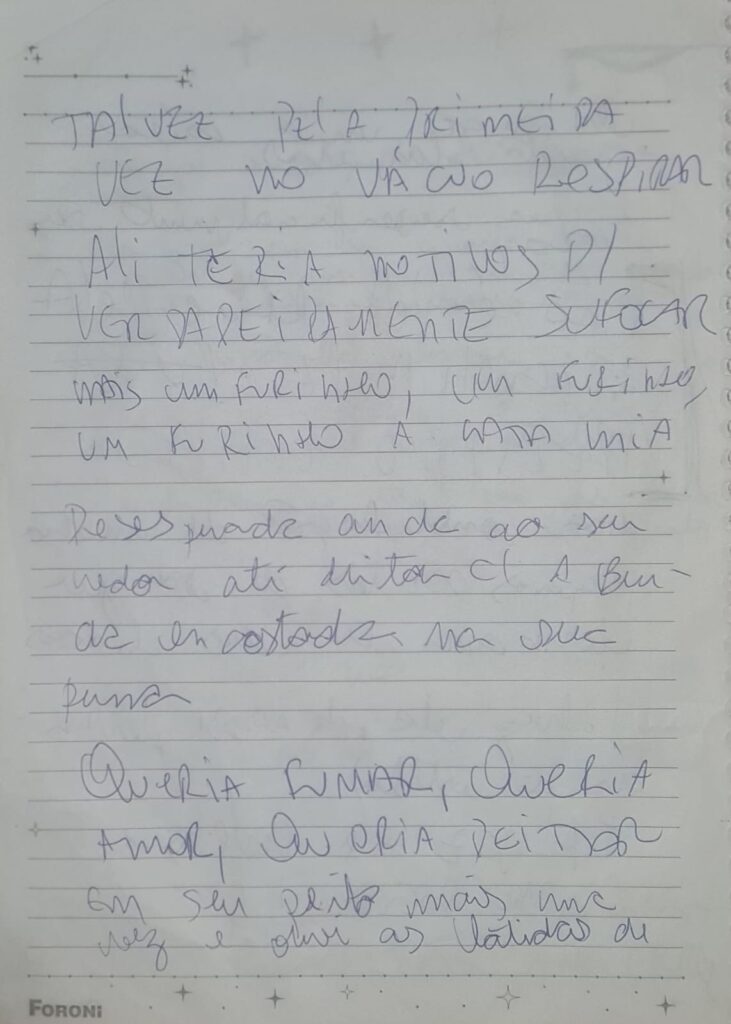 TALVEZ PELA PRIMEIRA
VEZ NO VÁCUO RESPIRAR
ALI TERIA MOTIVOS P/
VERDADEIRAMENTE SUFOCAR
mais um FURINHO, um FURINHO,
UM FURINHO A GATA MIA
Desesperada anda ao seu
redor até deitar c/ A Bun-
da encostada na sua
perna
QUERIA FUMAR, QUERIA
AMOR, QUERIA DEITAR
Em seu peito mais uma
vez e ouvir as batidas de
FORONI